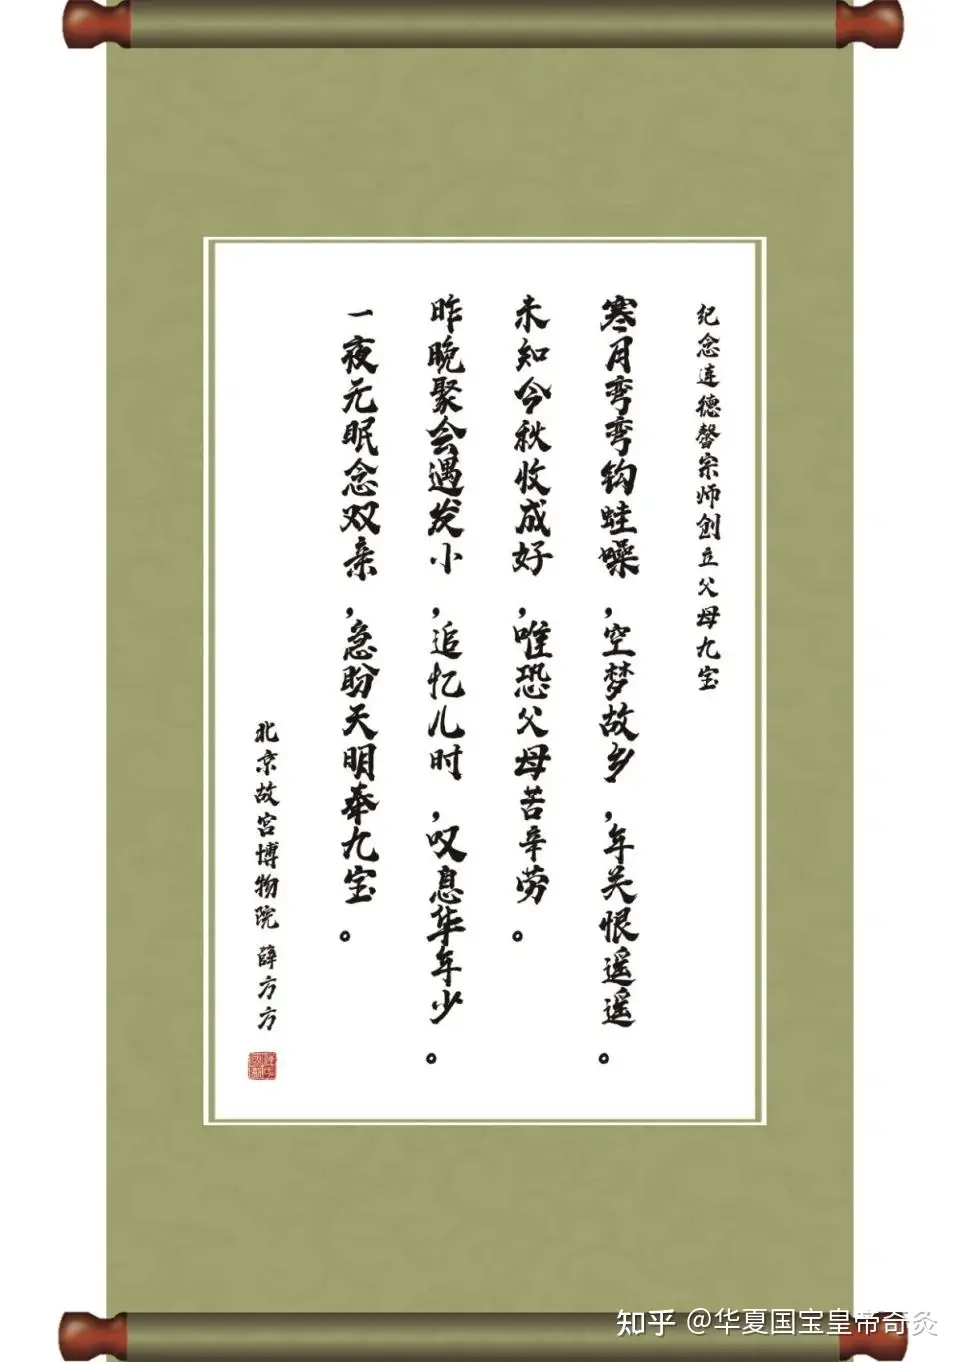 纪念连德馨宗师创立父母九宝
寒月弯弯钩蛙噪，空梦故乡，年关恨遥遥。
未知今秋收成好，唯恐父母苦辛劳。
昨晚聚会遇发小，追忆儿时，叹息华年少。
一夜无眠念双亲，急盼天明奉九宝。
北京故宫博物院 薛方方
知乎 @华夏国宝皇帝奇灸